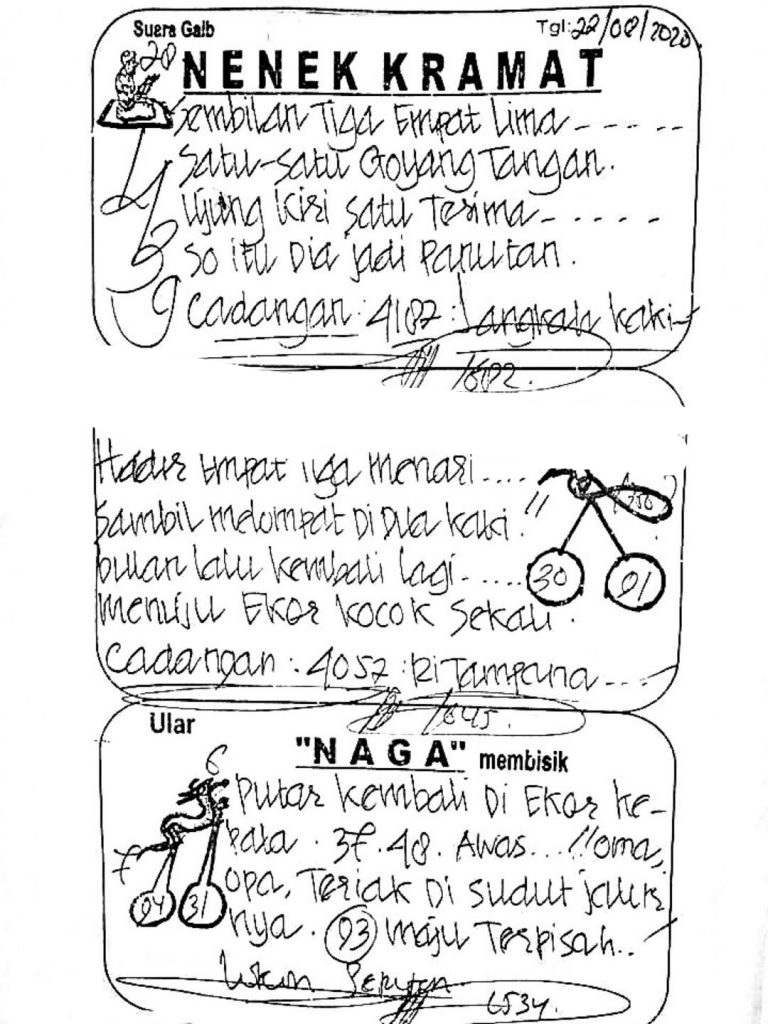 Suara Gaib Tgl: 22/08/2020
20 NENEK KRAMAT
Sembilan Tiga Empat Lima -----
Satu-satu Goyang Tangan.
Ujung Kiri Satu Terima -----
So itu Dia jadi Panutan.
Cadangan : 4187 : Langkah kaki
Hadir Empat Tiga Menari ....
Sambil Melompat Di Dua kaki. "
bulan lalu kembali lagi .....
menuju Ekor kocok Sekali.
30 01
Cadangan : 4052 : Di Tampuna ----
1645.
Ular
"NAGA" membisik
6
Putar kembali Di Ekor ke-
pala . 37.48. Awas... "oma,
7
opa, Teriak Di Sudut jalur
04 31
nya. 03 maju Terpisah..
6534.